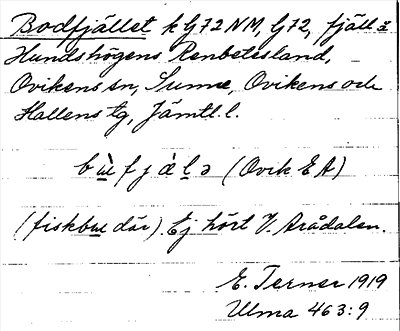 Bodfjället k G72 NM, G72, fjäll i
Hundshögens Renbetesland,
Ovikens sn, Sunne, Ovikens och
Hallens tg, Jämtl. l.
bù̲fjæ̀l̲ə (Ovik EA)
(fiskbu̲ där). Ej hört V. Arådalen.
E. Terner 1919
Ulma 463:9